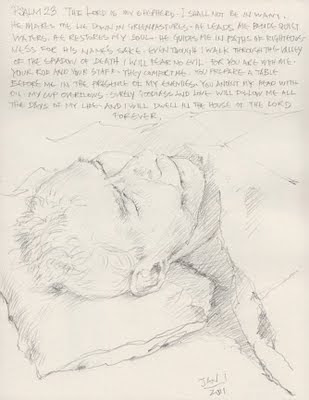 PSALM 23 THE LORD IS MY SHEPHERD. I SHALL NOT BE IN WANT.
HE MAKES ME LIE DOWN IN GREEN PASTURES. HE LEADS ME BESIDE QUIET
WATERS. HE RESTORES MY SOUL. HE GUIDES ME IN PATHS OF RIGHTEOUS-
NESS FOR HIS NAMES SAKE. EVEN THOUGH I WALK THROUGH THE VALLEY
OF THE SHADOW OF DEATH I WILL FEAR NO EVIL FOR YOU ARE WITH ME.
YOUR ROD AND YOUR STAFF. THEY COMFORT ME. YOU PREPARE A TABLE
BEFORE ME IN THE PRESENCE OF MY ENEMIES. YOU ANOINT MY HEAD WITH
OIL. MY CUP OVERFLOWS. SURELY GOODNESS AND LOVE WILL FOLLOW ME ALL
THE DAYS OF MY LIFE AND I WILL DWELL IN THE HOUSE OF THE LORD
FOREVER.
JAN